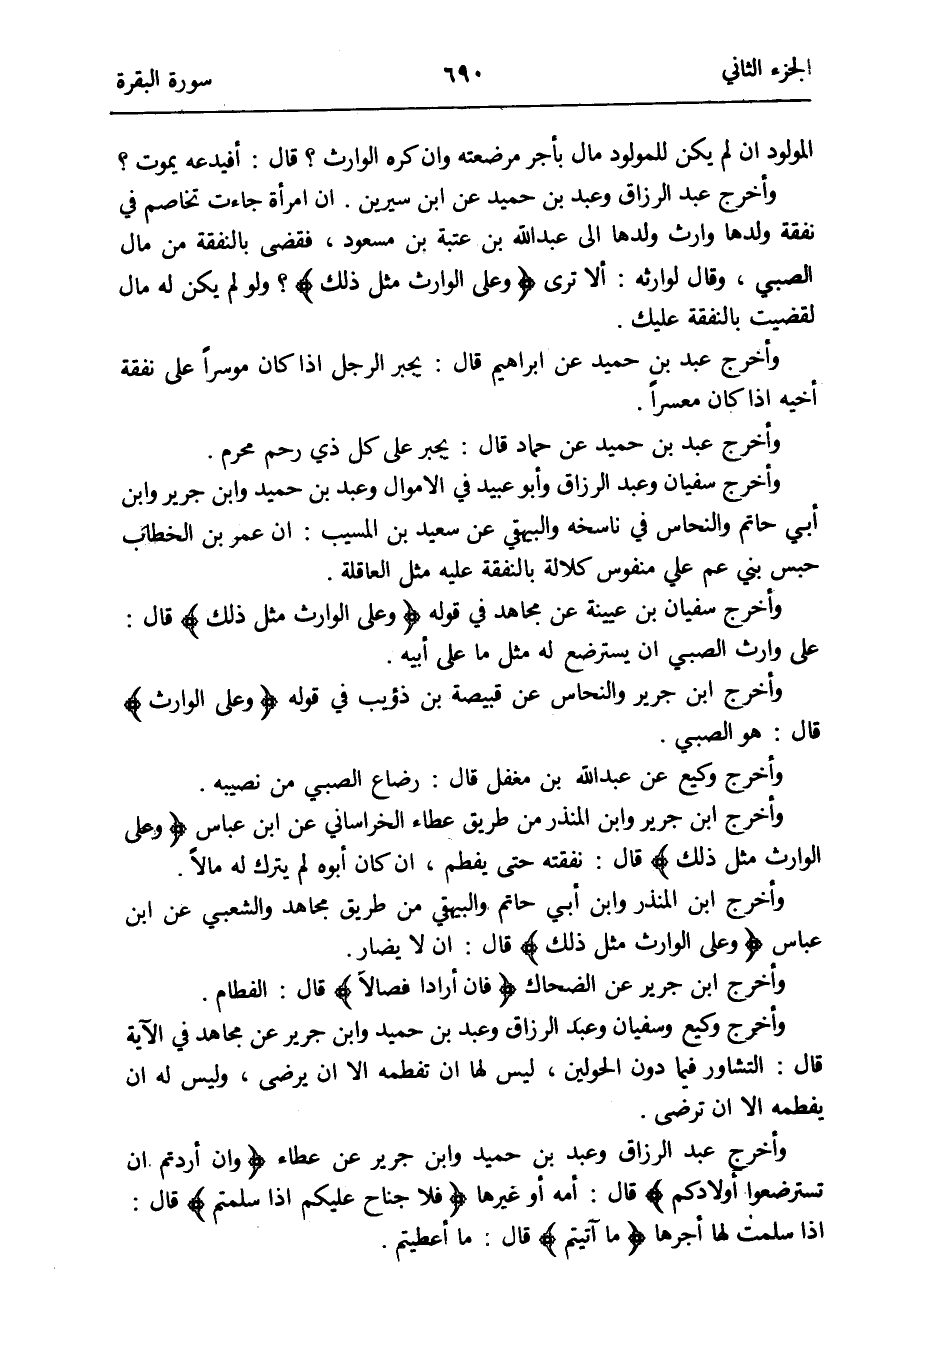 الجزء الثاني ٦٩٠ سورة البقرة
المولود ان لم يكن للمولود مال بأجر مرضعته وان كره الوارث ؟ قال : أفيدعه يموت ؟
وأخرج عبد الرزاق وعبد بن حميد عن ابن سيرين . ان امرأة جاءت تخاصم في
نفقة ولدها وارث ولدها الى عبدالله بن عتبة بن مسعود ، فقضى بالنفقة من مال
الصبي ، وقال لوارثه : ألا ترى ﴿ وعلى الوارث مثل ذلك ﴾ ؟ ولو لم يكن له مال
لقضيت بالنفقة عليك .
وأخرج عبد بن حميد عن ابراهيم قال : يجبر الرجل اذا كان موسراً على نفقة
أخيه اذا كان معسراً .
وأخرج عبد بن حميد عن حماد قال : يجبر على كل ذي رحم محرم .
وأخرج سفيان وعبد الرزاق وأبو عبيد في الاموال وعبد بن حميد وابن جرير وابن
أبي حاتم والنحاس في ناسخه والبيهقي عن سعيد بن المسيب : ان عمر بن الخطاب
حبس بني عم علي منفوس كلالة بالنفقة عليه مثل العاقلة .
وأخرج سفيان بن عيينة عن مجاهد في قوله ﴿ وعلى الوارث مثل ذلك ﴾ قال :
على وارث الصبي ان يسترضع له مثل ما على أبيه .
وأخرج ابن جرير والنحاس عن قبيصة بن ذؤيب في قوله ﴿ وعلى الوارث ﴾
قال : هو الصبي .
وأخرج وكيع عن عبدالله بن مغفل قال : رضاع الصبي من نصيبه .
وأخرج ابن جرير وابن المنذر من طريق عطاء الخراساني عن ابن عباس ﴿ وعلى
الوارث مثل ذلك ﴾ قال : نفقته حتى يفطم ، ان كان أبوه لم يترك له مالاً .
وأخرج ابن المنذر وابن أبي حاتم والبيهقي من طريق مجاهد والشعبي عن ابن
عباس ﴿ وعلى الوارث مثل ذلك ﴾ قال : ان لا يضار .
وأخرج ابن جرير عن الضحاك ﴿ فان أرادا فصالاً ﴾ قال : الفطام .
وأخرج وكيع وسفيان وعبد الرزاق وعبد بن حميد وابن جرير عن مجاهد في الآية
قال : التشاور فيما دون الحولين ، ليس لها ان تفطمه الا ان يرضى ، وليس له ان
يفطمه الا ان ترضى .
وأخرج عبد الرزاق وعبد بن حميد وابن جرير عن عطاء ﴿ وان أردتم ان
تسترضعوا أولادكم ﴾ قال : أمه أو غيرها ﴿ فلا جناح عليكم اذا سلمتم ﴾ قال :
اذا سلمت لها أجرها ﴿ ما آتيتم ﴾ قال : ما أعطيتم .